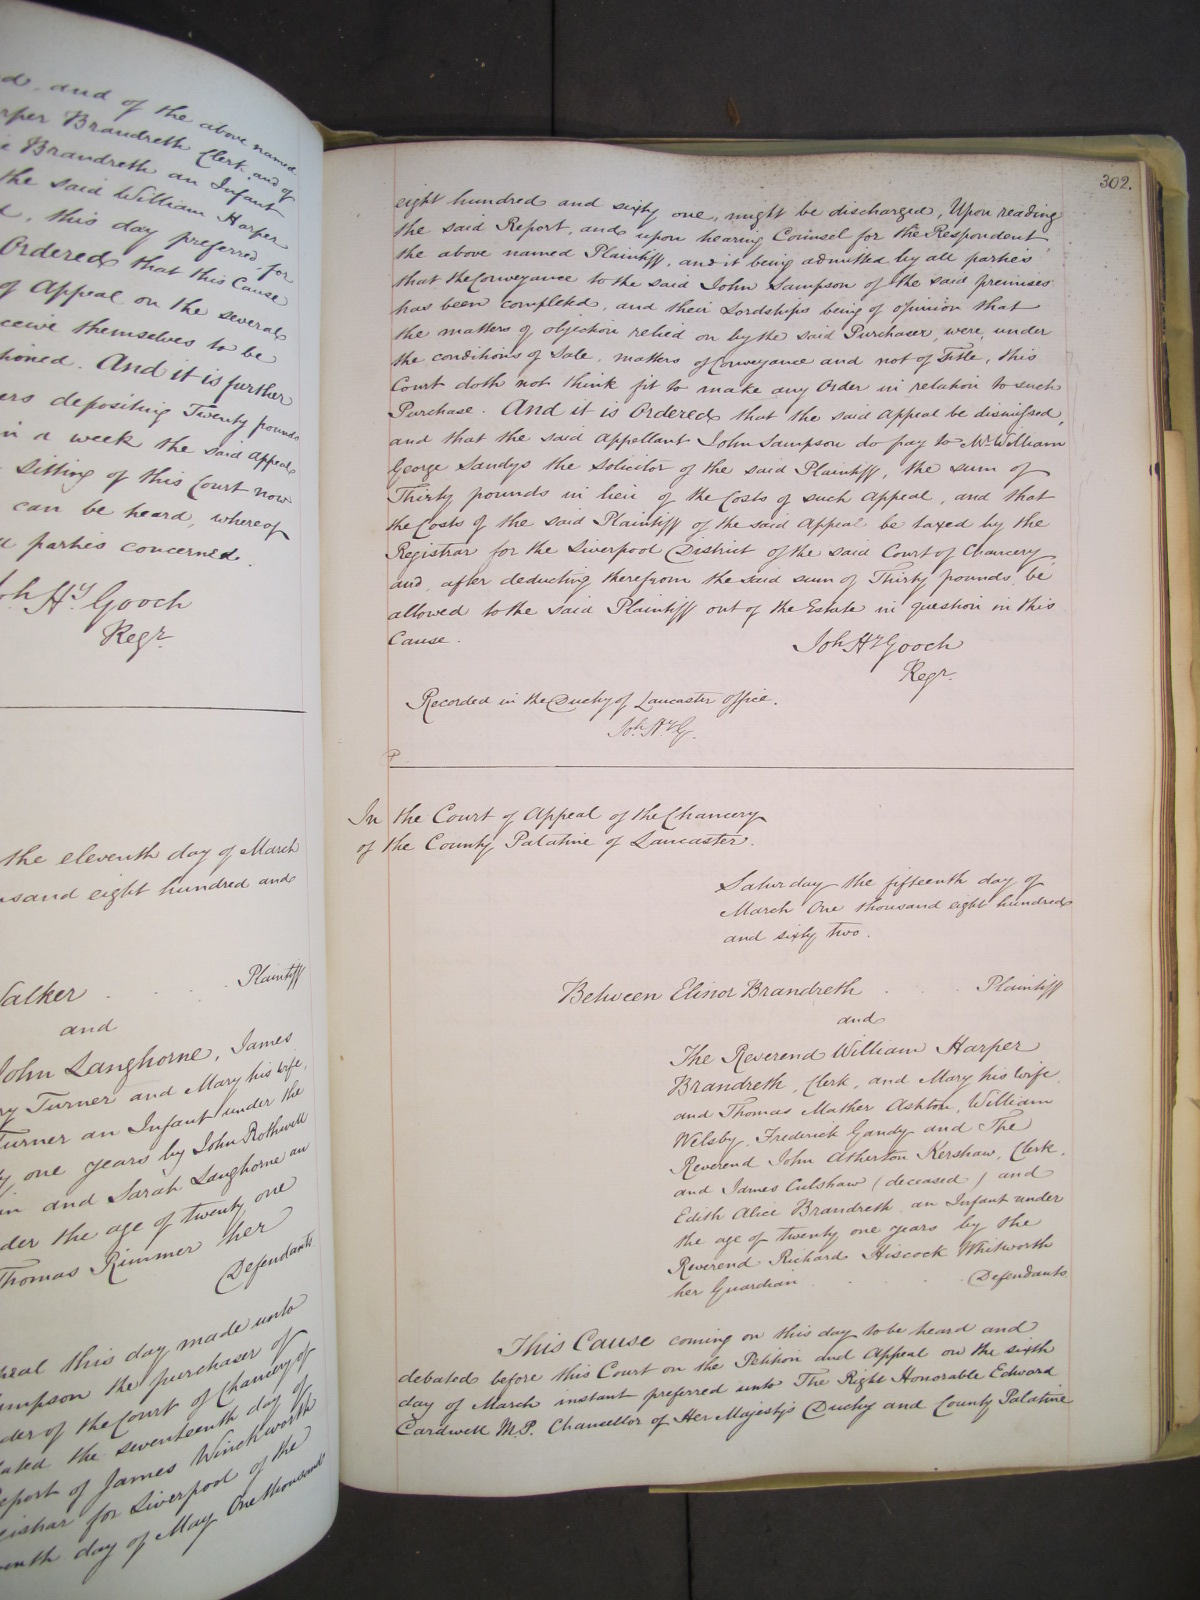 d, and of the above named
rper Brandreth Clerk and of
e Brandreth an Infant
the said William Harper
d, this day preferred for
Ordered that this Cause
of Appeal on the several
ceive themselves to be
tioned. And it is further
ers depositing Twenty pounds
in a week the said Appeal
sitting of this Court now
can be heard, whereof
parties concerned.
oh Hy Gooch
Regr.
the eleventh day of March
usand eight hundred and
Walker . . . Plaintiff
and
John Langhorne, James
ry Turner and Mary his wife,
Turner an Infant under the
y one years by John Rothwell
in and Sarah Langhorne an
der the age of twenty one
Thomas Rimmer her
Defendants
peal this day made unto
ampson the purchaser of
der of the Court of Chancery of
ated the seventeenth day of
eport of James Winckworth
gistrar for Liverpool of the
enth day of May One thousand
302.
eight hundred and sixty one, might be discharged, Upon reading
the said Report, and upon hearing Counsel for the Respondent
the above named Plaintiff, and it being admitted by all parties
that the Conveyance to the said John Sampson of the said premises
has been completed, and their Lordships being of opinion that
the matters of objection relied on by the said Purchaser, were, under
the conditions of Sale, matters of Conveyance and not of Title, this
Court doth not think fit to make any Order in relation to such
Purchase. And it is Ordered that the said Appeal be dismissed,
and that the said Appellant John Sampson do pay to Mr. William
George Sandys the Solicitor of the said Plaintiff, the sum of
Thirty pounds in lieu of the Costs of such Appeal, and that
the Costs of the said Plaintiff of the said Appeal be taxed by the
Registrar for the Liverpool District of the said Court of Chancery
and, after deducting therefrom the said sum of Thirty pounds, be
allowed to the said Plaintiff out of the Estate in question in this
Cause.
Joh Hy Gooch
Regr.
Recorded in the Duchy of Lancaster Office.
Joh. Hy G.
In the Court of Appeal of the Chancery
of the County Palatine of Lancaster.
Saturday the fifteenth day of
March One thousand eight hundred
and sixty two.
Between Elinor Brandreth . . . Plaintiff
and
The Reverend William Harper
Brandreth, Clerk, and Mary his Wife,
and Thomas Mather Ashton, William
Welsby, Frederick Gandy and The
Reverend John Atherton Kershaw, Clerk,
and James Culshaw (deceased) and
Edith Alice Brandreth an Infant under
the age of twenty one years by the
Reverend Richard Hiscock Whitworth
her Guardian . . . Defendants
This Cause coming on this day to be heard and
debated before this Court on the Petition and Appeal on the sixth
day of March instant preferred unto The Right Honorable Edward
Cardwell M.P. Chancellor of Her Majesty's Duchy and County Palatine